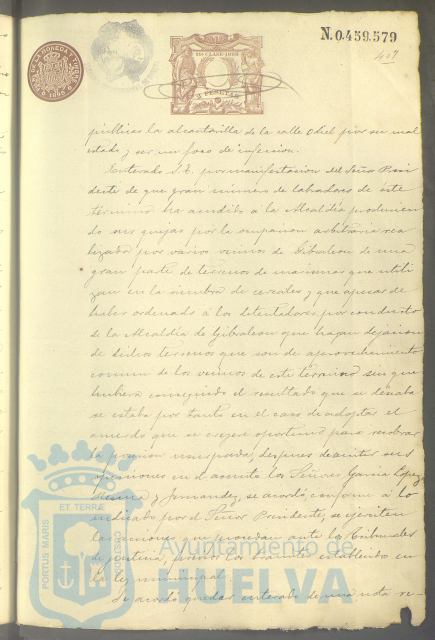 N.0.459.579
407
publicas la alcantarilla de la calle Odiel por su mal
estado y ser un foco de infeccion.
Enterado S.E. por manifestacion del Señor Presi
dente de que gran número de labradores de este
término ha acudido á la Alcaldía produciendo
sus quejas por la ocupacion arbitraria rea
lizada por varios vecinos de Gibraleon de una
gran parte de terrenos de marismas que utili
zan en la siembra de cereales y que apesar de
haber ordenado á los detentadores por conducto
de la Alcaldía de Gibraleon que hagan dejacion
de dichos terrenos que son de aprovechamiento
comun de los vecinos de este término sin que
hubiera conseguido el resultado que se deseaba
se estaba por tanto en el caso de adoptar el
acuerdo que se creyese oportuno para recobrar
la posesion usurpada, despues de emitir sus
opiniones en el asunto los Señores García López
y Fernandez, se acordó, conforme á lo
indicado por el Señor Presidente, se ejerciten
las acciones que procedan ante los Tribunales
de justicia, previos los trámites establecidos en
la ley municipal.
Se acordó quedar enterado de una nota re-
PORTUS MARIS
ET TERRÆ
CUSTODIA
Ayuntamiento de
HUELVA